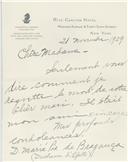 Ritz-Carlton Hotel
Madison Avenue & Forty-Sixth Street
New York
21 novembre 1929
Chère Madame,
Seulement vous
dire comment je
regrette la mort de votre
cher mari. Il était
mon ami sincère
Mes profondes
condoléances.
D. Maria Pia de Bragança